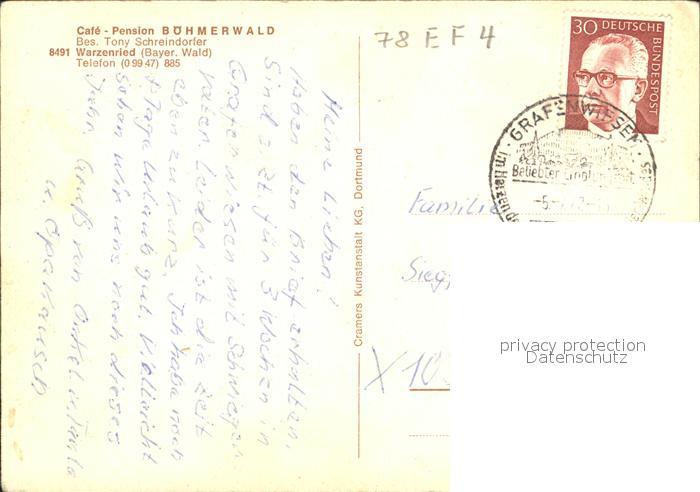 Café - Pension BÖHMERWALD
Bes. Tony Schreindorfer
8491 Warzenried (Bayer. Wald)
Telefon (0 99 47) 885
78 E F 4
30 DEUTSCHE BUNDESPOST
· GRAFENWIESEN ·
Beliebter
Im Herzen
Meine Lieben!
Haben den Brief erhalten,
Sind z. Zt. für 3 Wochen in
Grafenwiesen mit Schwieger-
vater. Leider ist die Zeit
eben zu kurz. Ich habe noch
Tage Urlaub gut. Vielleicht
sehen wir uns noch dieses
Jahr. Gruß von Onkel u. Tante
u. Opa
Cramers Kunstanstalt KG, Dortmund
Familie
X 10
privacy protection
Datenschutz